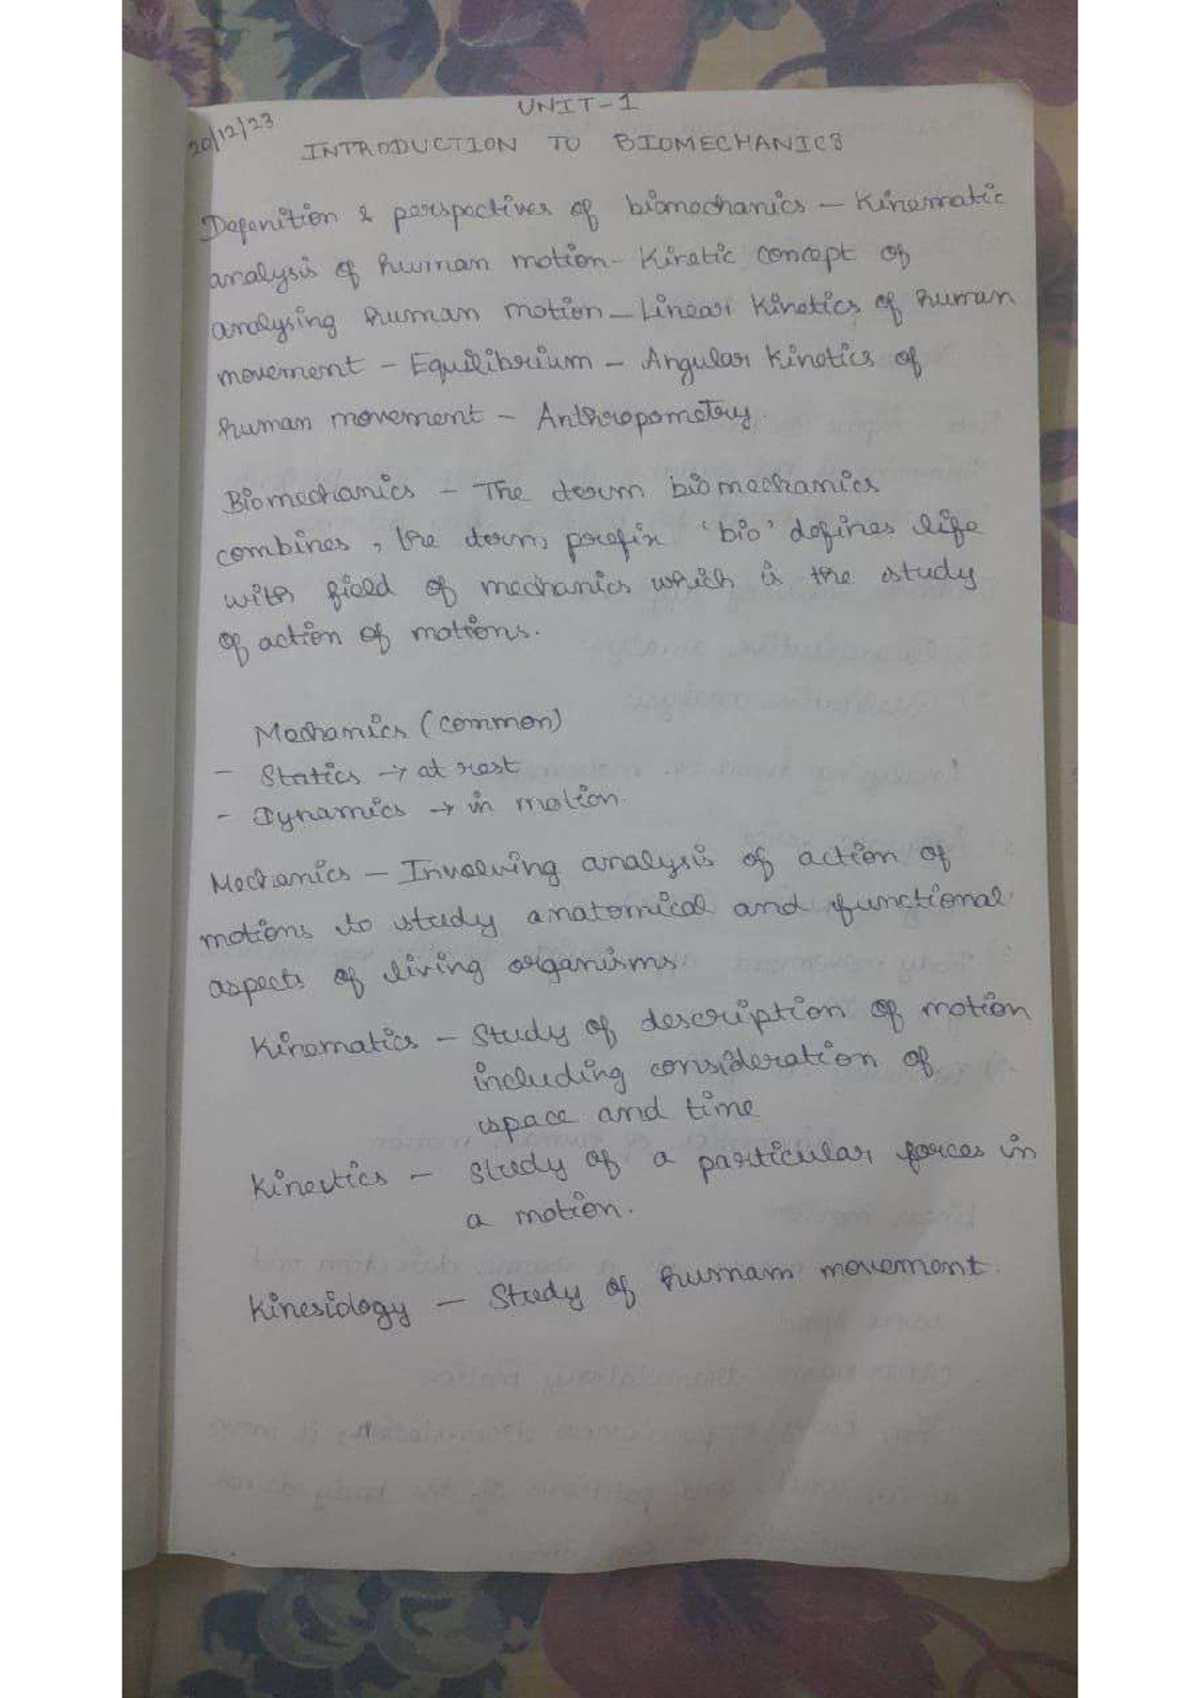 UNIT-1
20/12/23
INTRODUCTION TO BIOMECHANICS
Defenition & perspectives of biomechanics – Kinematic
analysis of human motion - Kinetic concept of
analysing human motion – Linear Kinetics of human
movement – Equilibrium – Angular Kinetics of
human movement – Anthropometry.
Biomechanics – The term biomechanics
combines, the term, prefix 'bio' defines life
with field of mechanics which is the study
of action of motions.
Mechanics (common)
– Statics → at rest
– Dynamics → in motion.
Mechanics – Involving analysis of action of
motions to study anatomical and functional
aspects of living organisms.
Kinematics – Study of description of motion
including consideration of
space and time
Kinectics – Study of a particular forces in
a motion.
Kinesiology – Study of human movement.